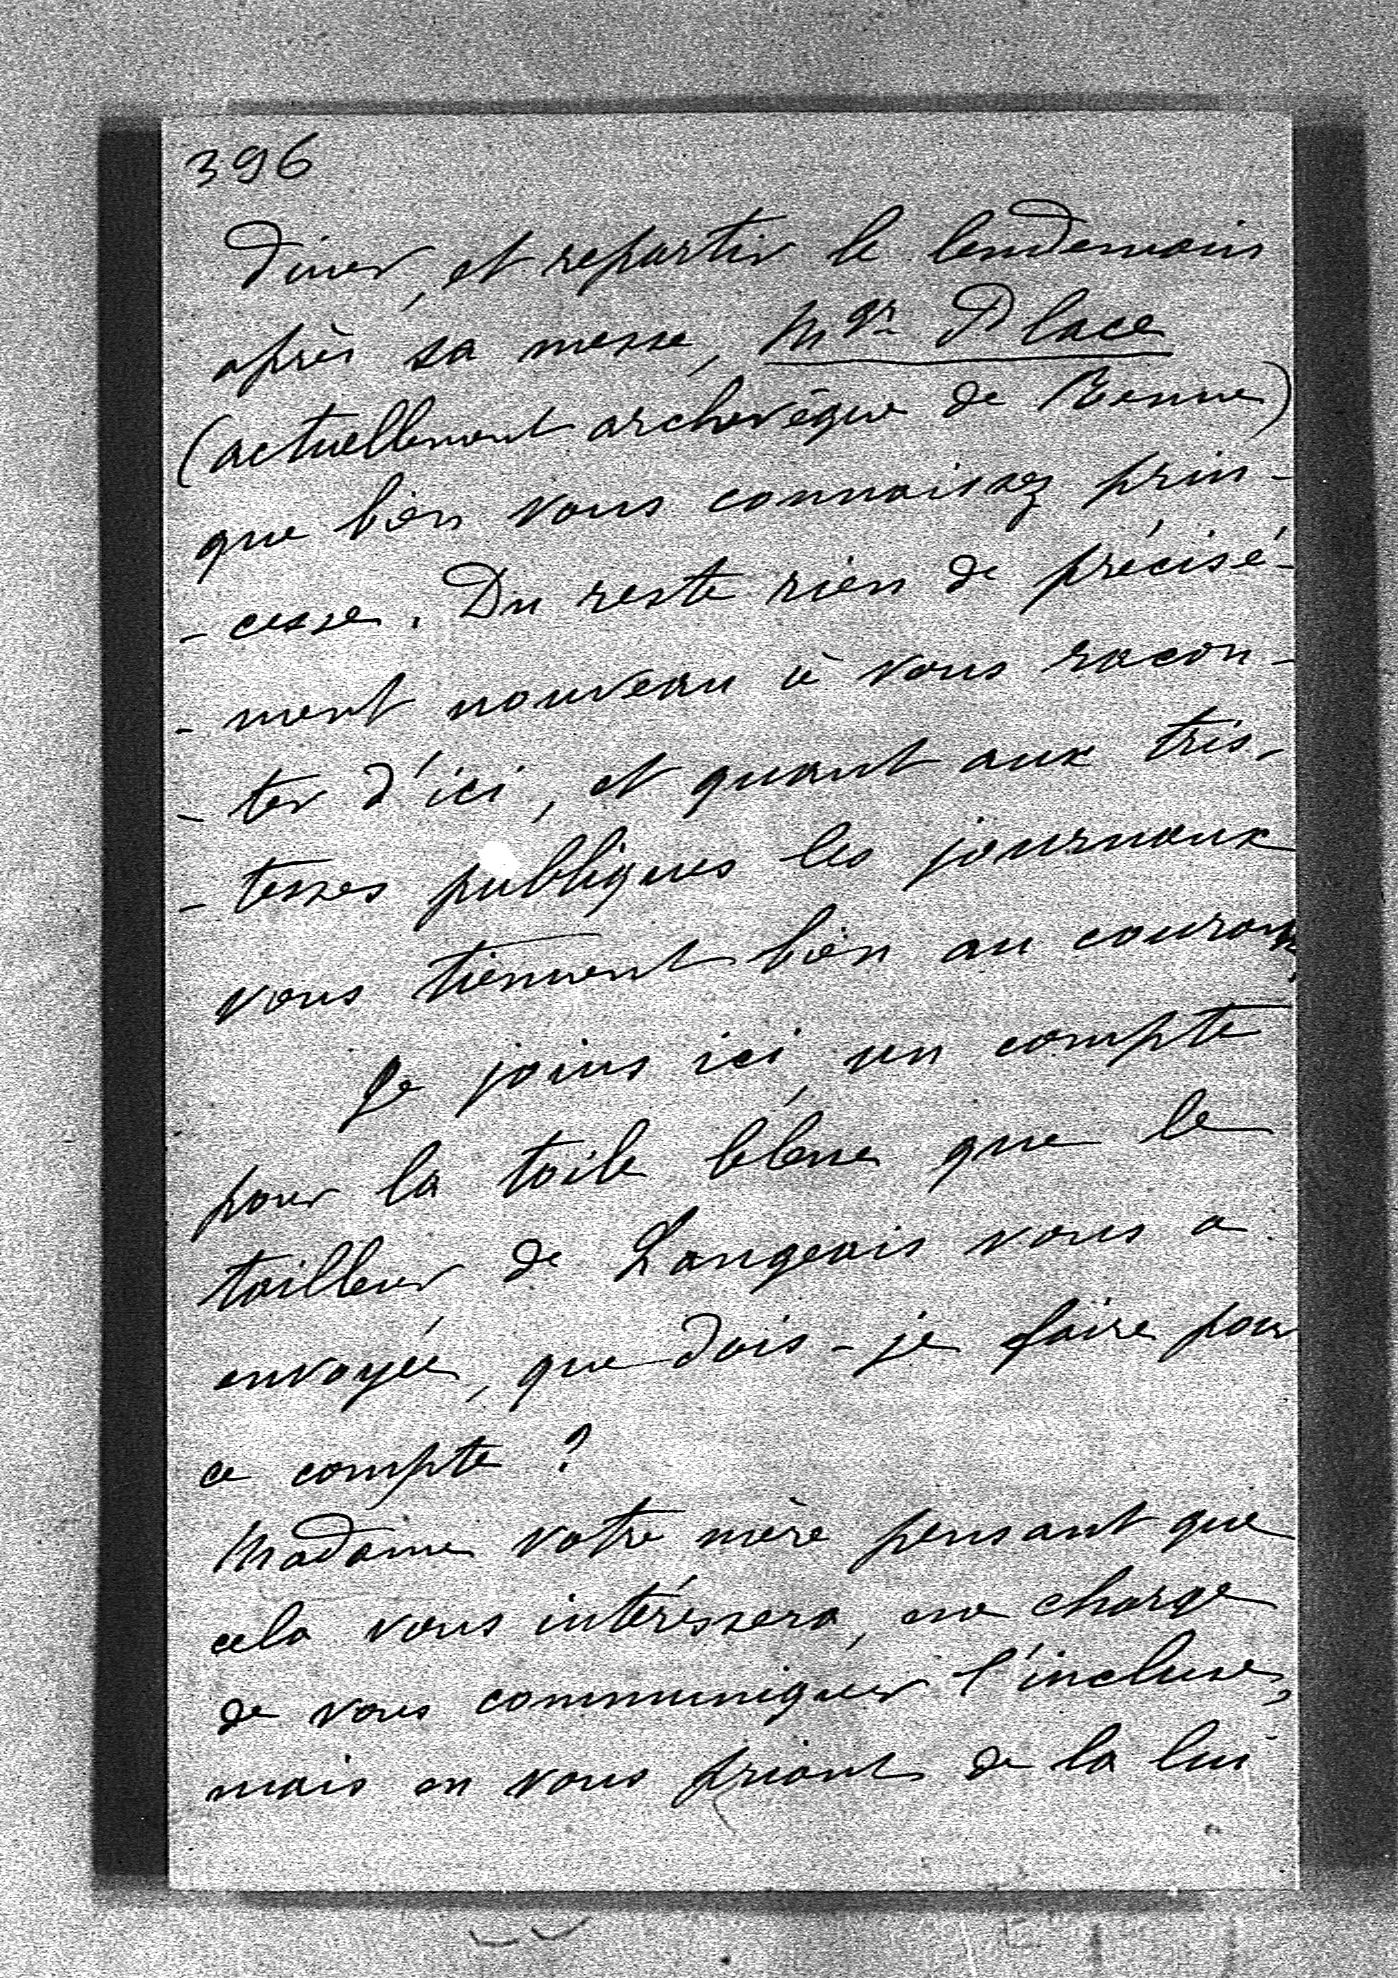 396
diner, et repartir le lendemain
après sa messe, Mgr Place
(actuellement archevêque de Renne)
que bien vous connaissez prin-
-cesse. Du reste rien de précisé-
-ment nouveau à vous racon-
-ter d'ici, et quant aux tris-
-tesses publiques les journaux
vous tiennent bien au courant,
Je joins ici, un compte
pour la toile bleue que le
tailleur de Langeais vous a
envoyée, que dois-je faire pour
ce compte ?
Madame votre mère pensant que
cela vous intéressera, me charge
de vous communiquer l'incluse,
mais en vous priant de la lui